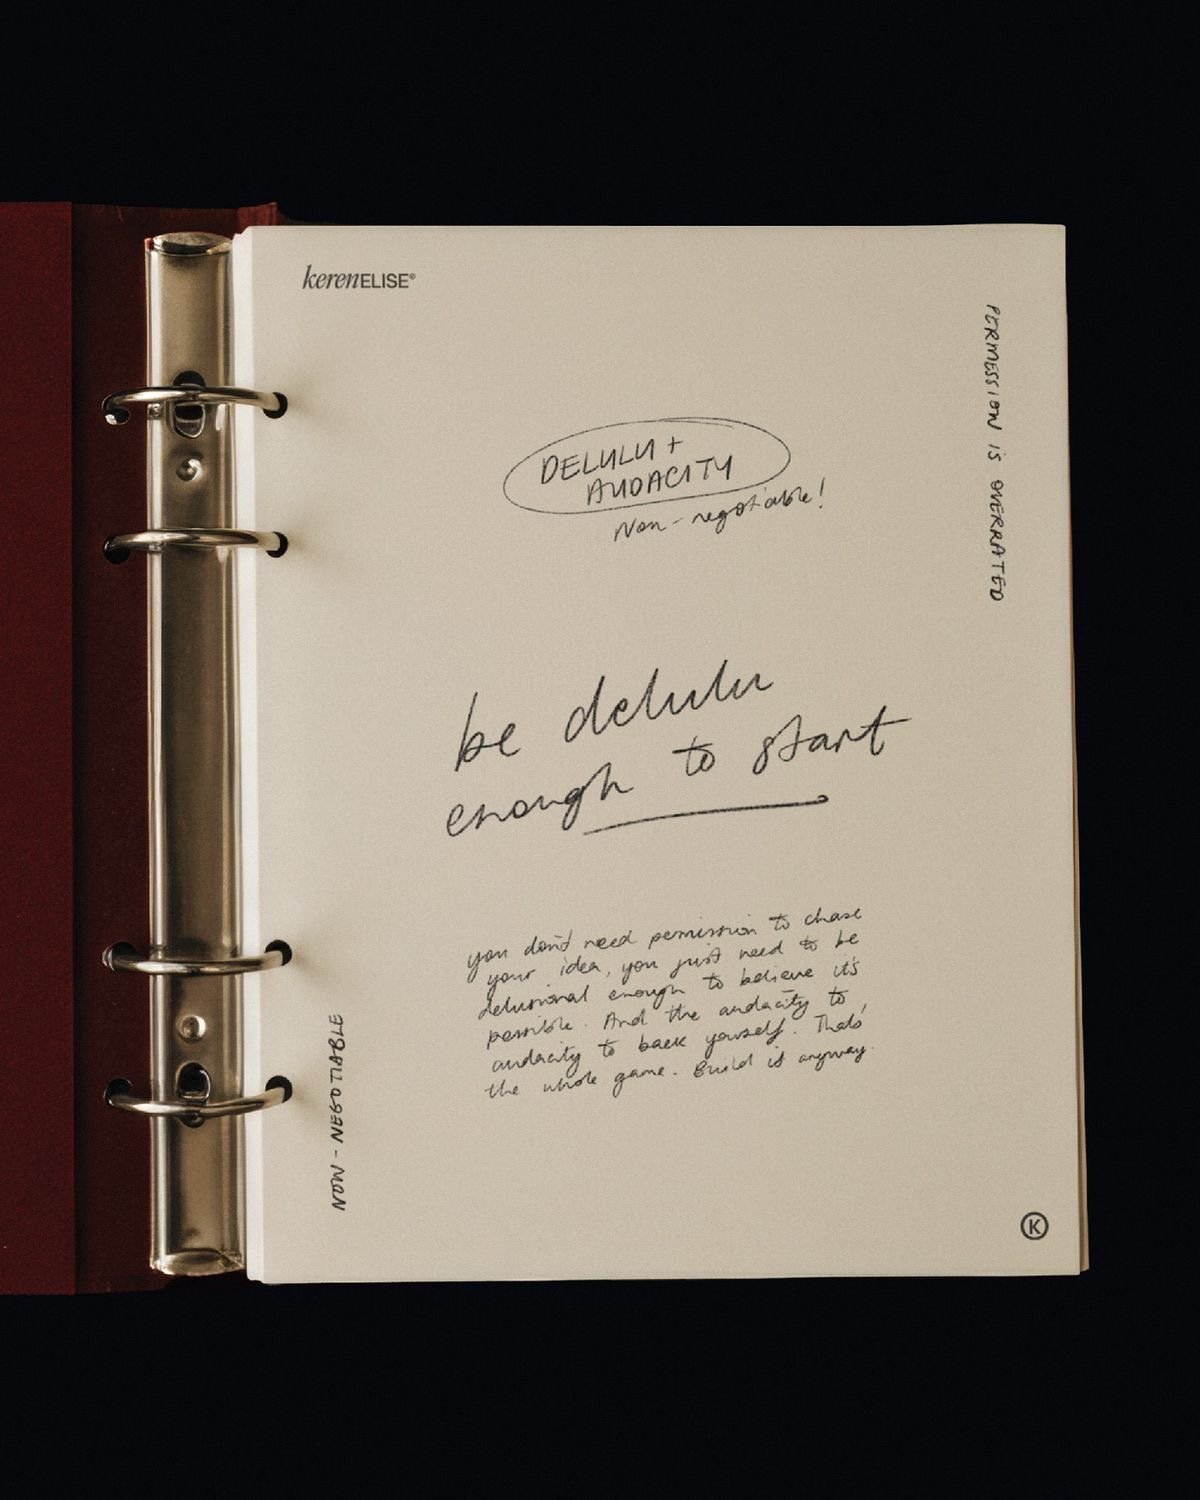 kerenELISE®
PERMISSION IS OVERRATED
DELULU +
AUDACITY
Non-negotiable!
be delulu
enough to start
you don't need permission to chase
your idea, you just need to be
delusional enough to believe it's
possible. And the audacity to,
audacity to back yourself. That's
the whole game. Build it anyway.
NON-NEGOTIABLE
K